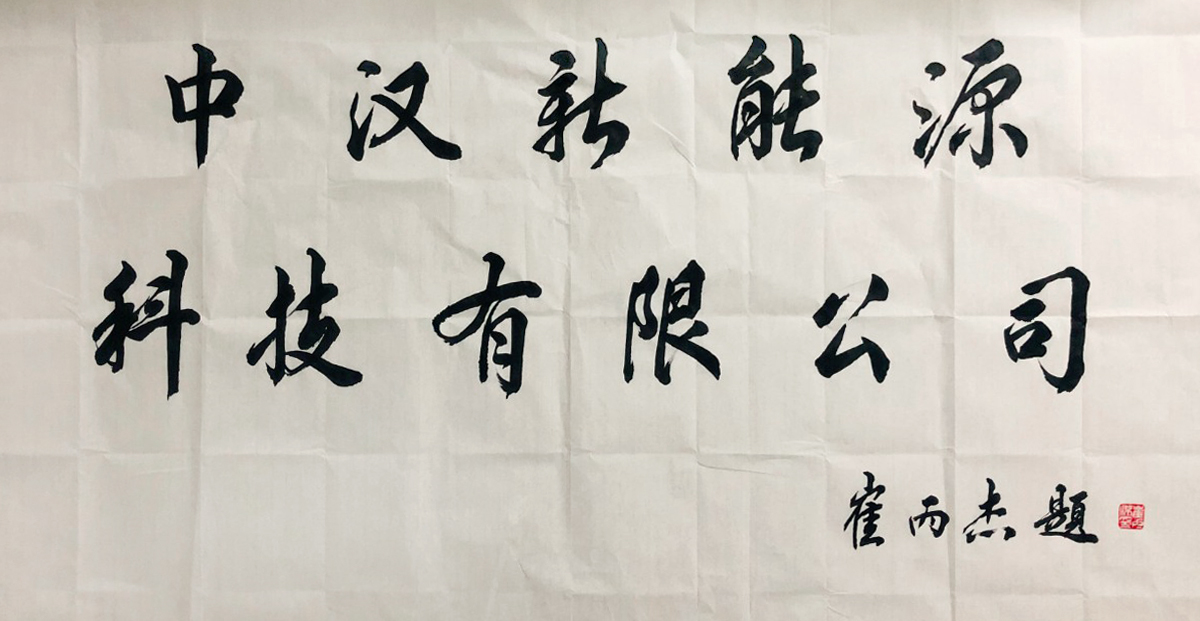 中汉新能源
科技有限公司
崔丙杰题